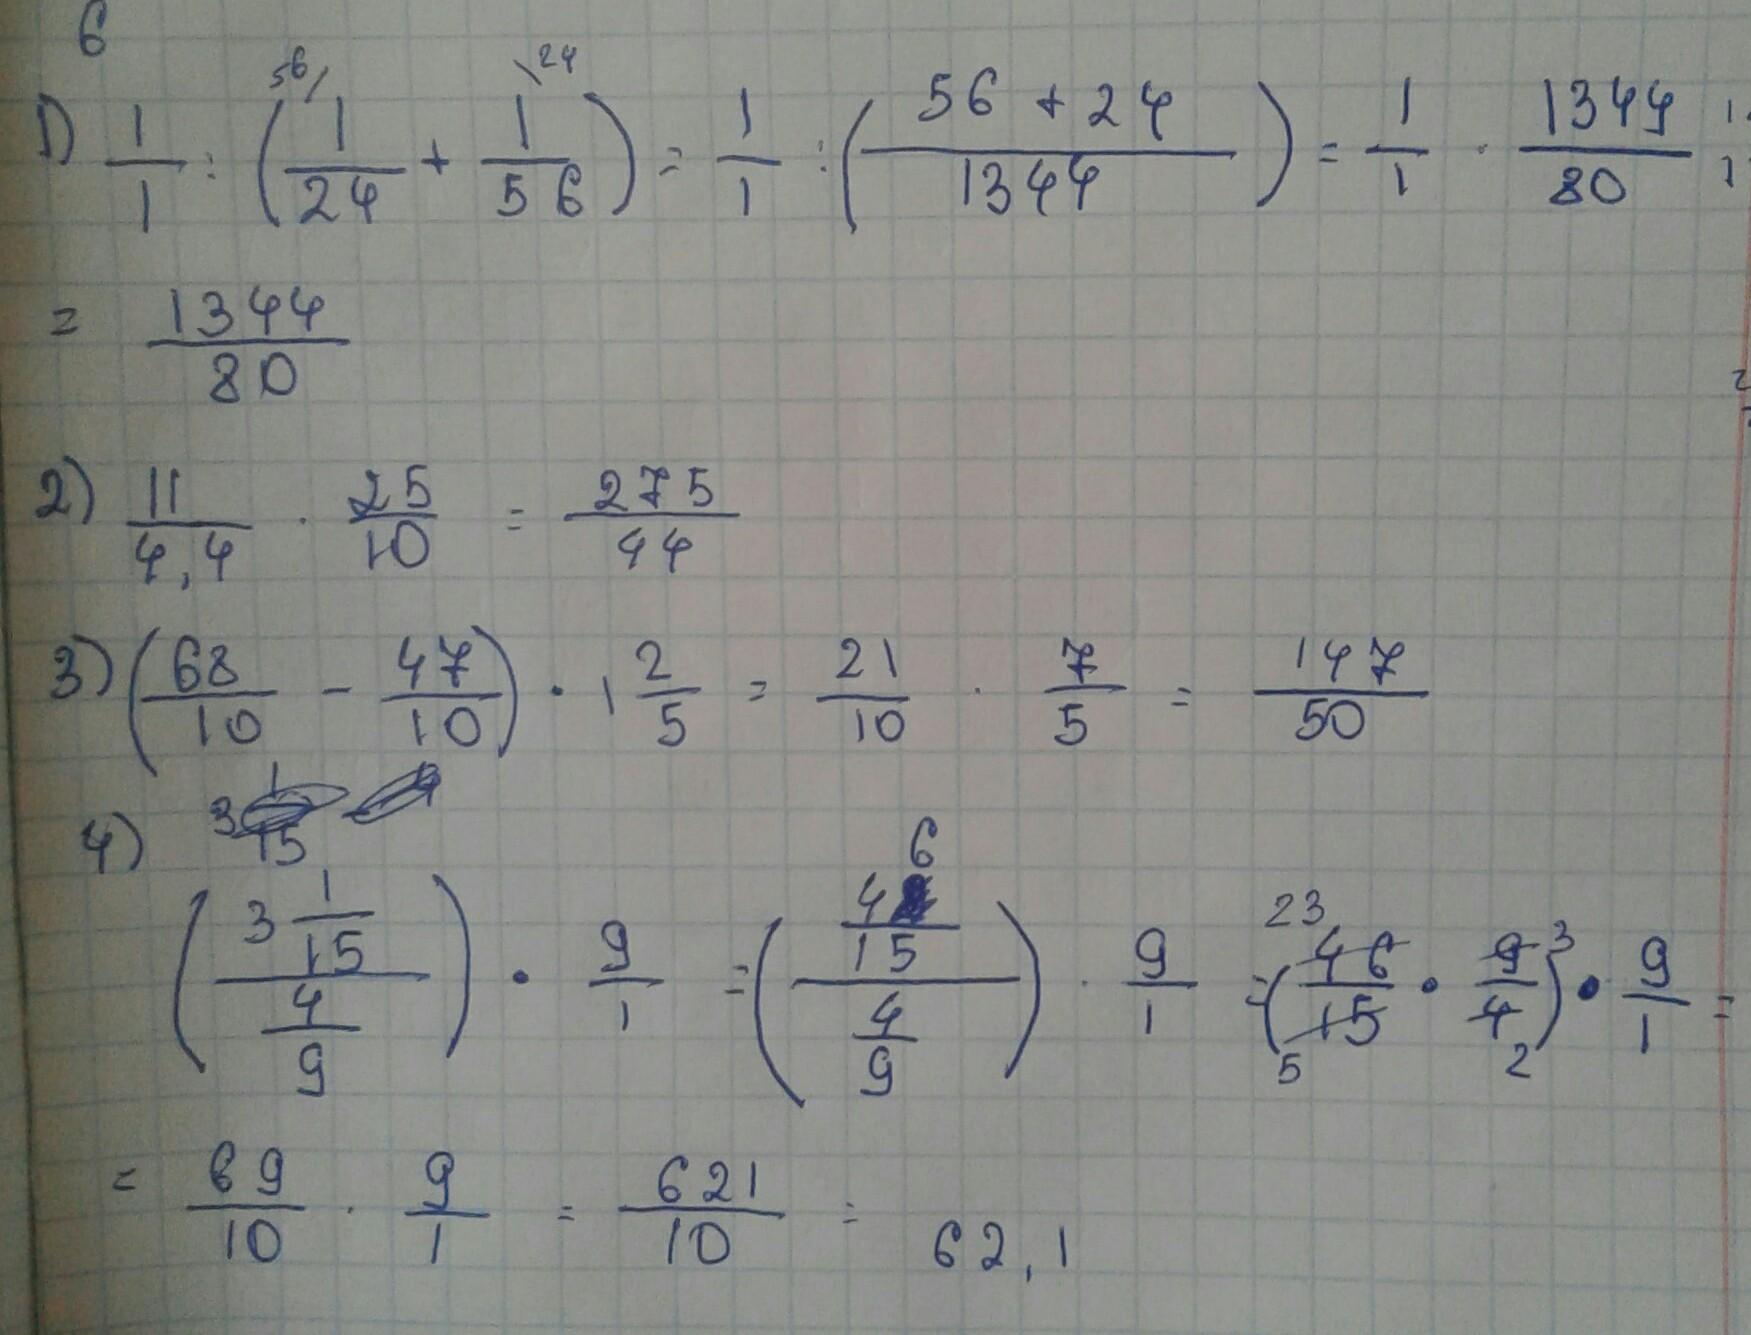 6
1) 1/1 : (56/ 1/24 + 1/56 \24) = 1/1 : ((56 + 24)/1344) = 1/1 · 1344/80
= 1344/80
2) 11/4,4 · 25/10 = 275/44
3) (68/10 - 47/10) · 1 2/5 = 21/10 · 7/5 = 147/50
4) 3 1/15
((3 1/15)/(4/9)) · 9/1 = ((46/15)/(4/9)) · 9/1 = (23 46/15 5 · 9/4 3 2) · 9/1 =
= 69/10 · 9/1 = 621/10 = 62,1